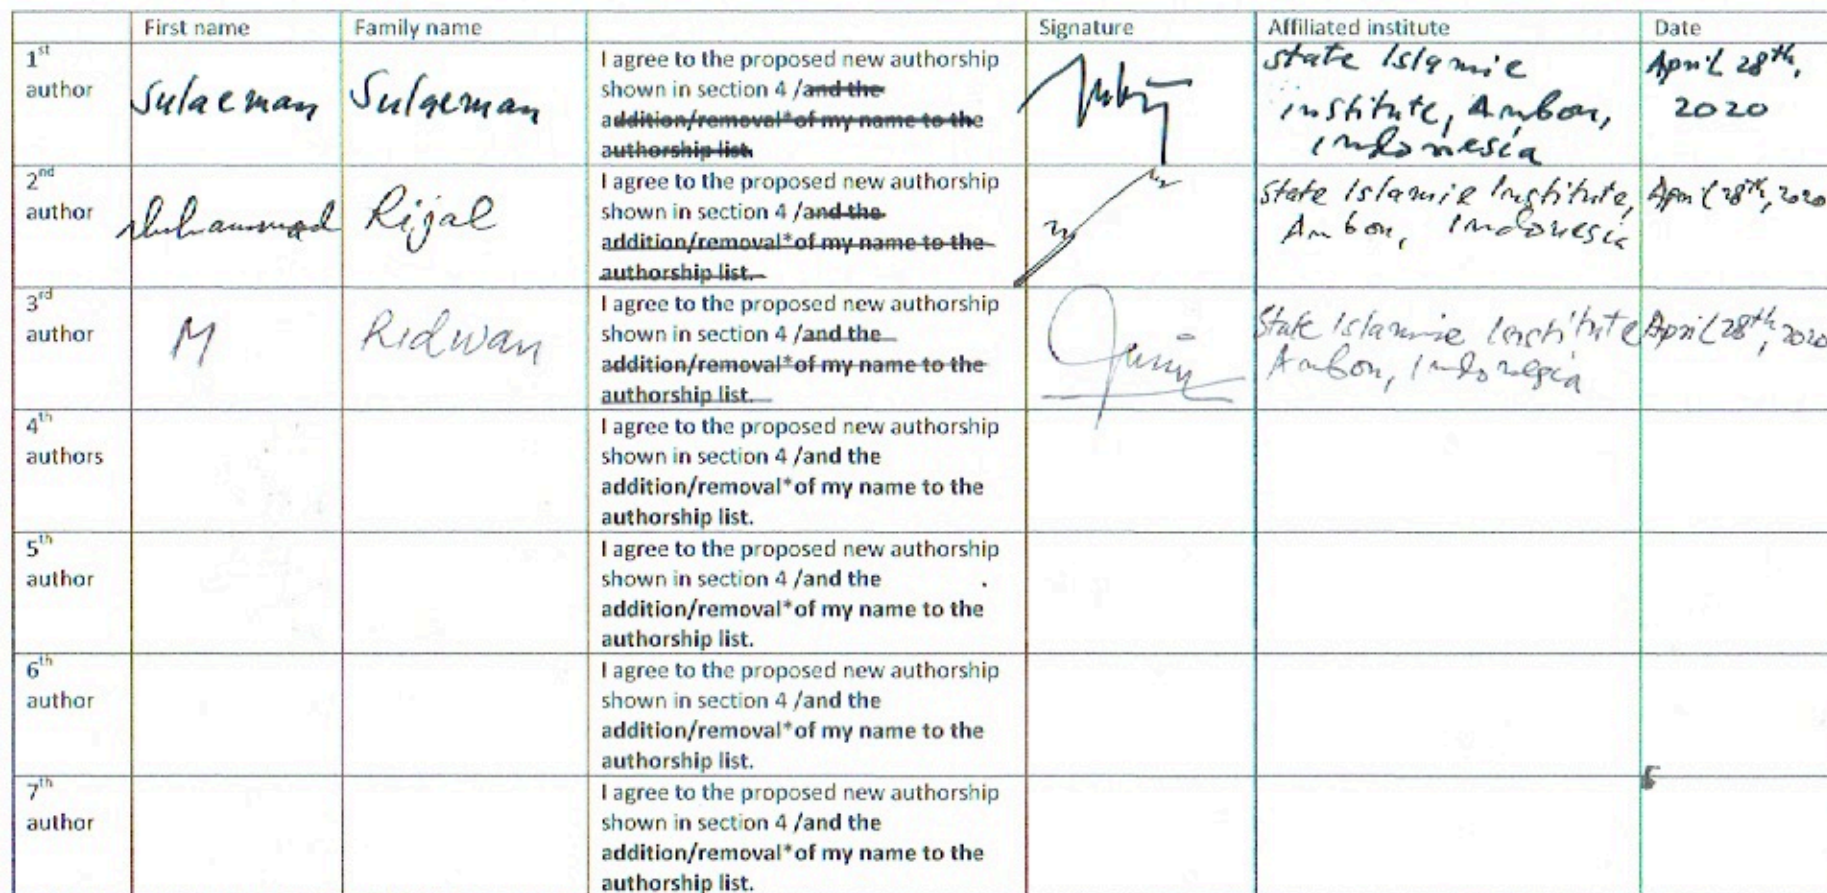 First name Family name Signature Affiliated institute Date
1st author Sulaeman Sulaeman
I agree to the proposed new authorship
shown in section 4 /and the
addition/removal*of my name to the
authorship list.
State Islamic
institute, Ambon,
Indonesia
April 28th,
2020
2nd author Muhammad Rijal
I agree to the proposed new authorship
shown in section 4 /and the
addition/removal*of my name to the
authorship list.
State Islamic Institute,
Ambon, Indonesia
April 28th, 2020
3rd author M Ridwan
I agree to the proposed new authorship
shown in section 4 /and the
addition/removal*of my name to the
authorship list.
State Islamic Institute
Ambon, Indonesia
April 28th, 2020
4th
authors
I agree to the proposed new authorship
shown in section 4 /and the
addition/removal*of my name to the
authorship list.
5th
author
I agree to the proposed new authorship
shown in section 4 /and the
addition/removal*of my name to the
authorship list.
6th
author
I agree to the proposed new authorship
shown in section 4 /and the
addition/removal*of my name to the
authorship list.
7th
author
I agree to the proposed new authorship
shown in section 4 /and the
addition/removal*of my name to the
authorship list.